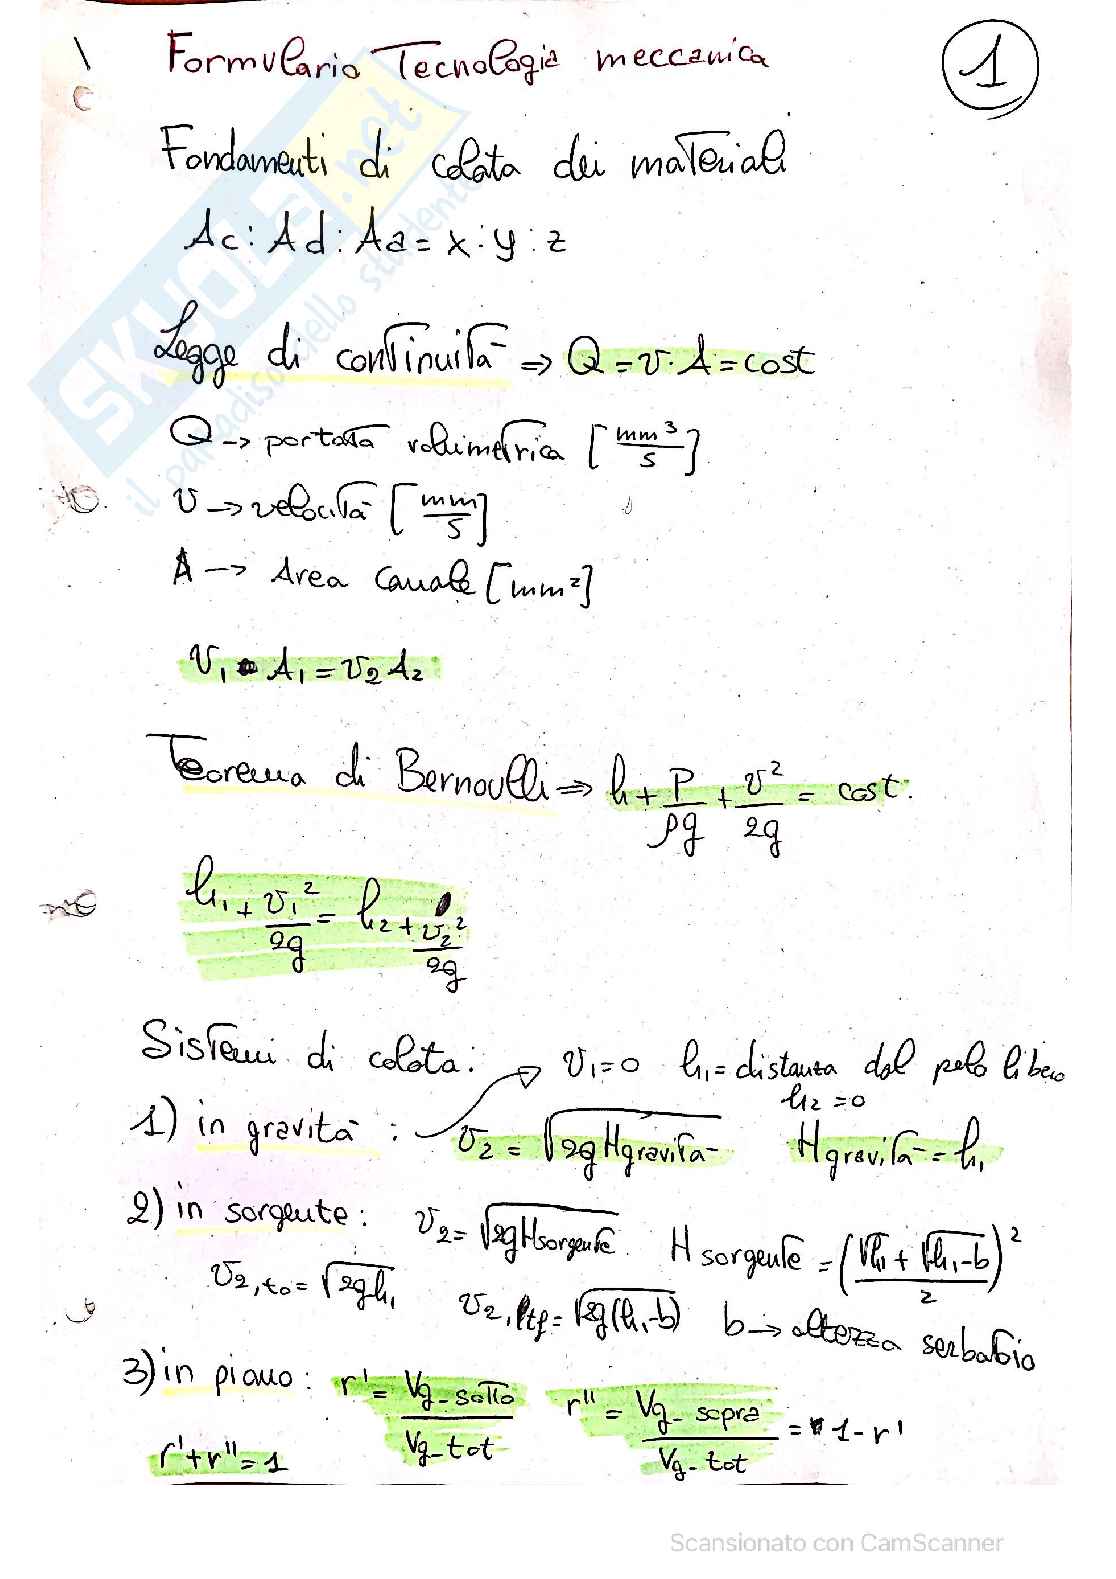 Formulario Tecnologia meccanica
1
Fondamenti di colata dei materiali
Ac : Ad : Aa = x : y : z
Legge di continuità => Q = v · A = cost
Q -> portata volumetrica [mm³/s]
v -> velocità [mm/s]
A -> Area canale [mm²]
v₁ · A₁ = v₂ A₂
Teorema di Bernoulli => h + P/ρg + v²/2g = cost.
h₁ + v₁²/2g = h₂ + v₂²/2g
Sistemi di colata: v₁=0 h₁= distanza dal pelo libero
h₂ =0
1) in gravità : v₂ = √2gHgravità Hgravità = h₁
2) in sorgente : v₂ = √2gHsorgente Hsorgente = ((√h₁ + √h₁-b)/2)²
v₂,to = √2gh₁ v₂,tf = √2g(h₁-b) b -> altezza serbatoio
3) in piano : r' = Vg-sotto/Vg-tot r'' = Vg-sopra/Vg-tot = 1 - r'
r'+r''=1
SKUOLA.net
il paradiso dello studente
Scansionato con CamScanner